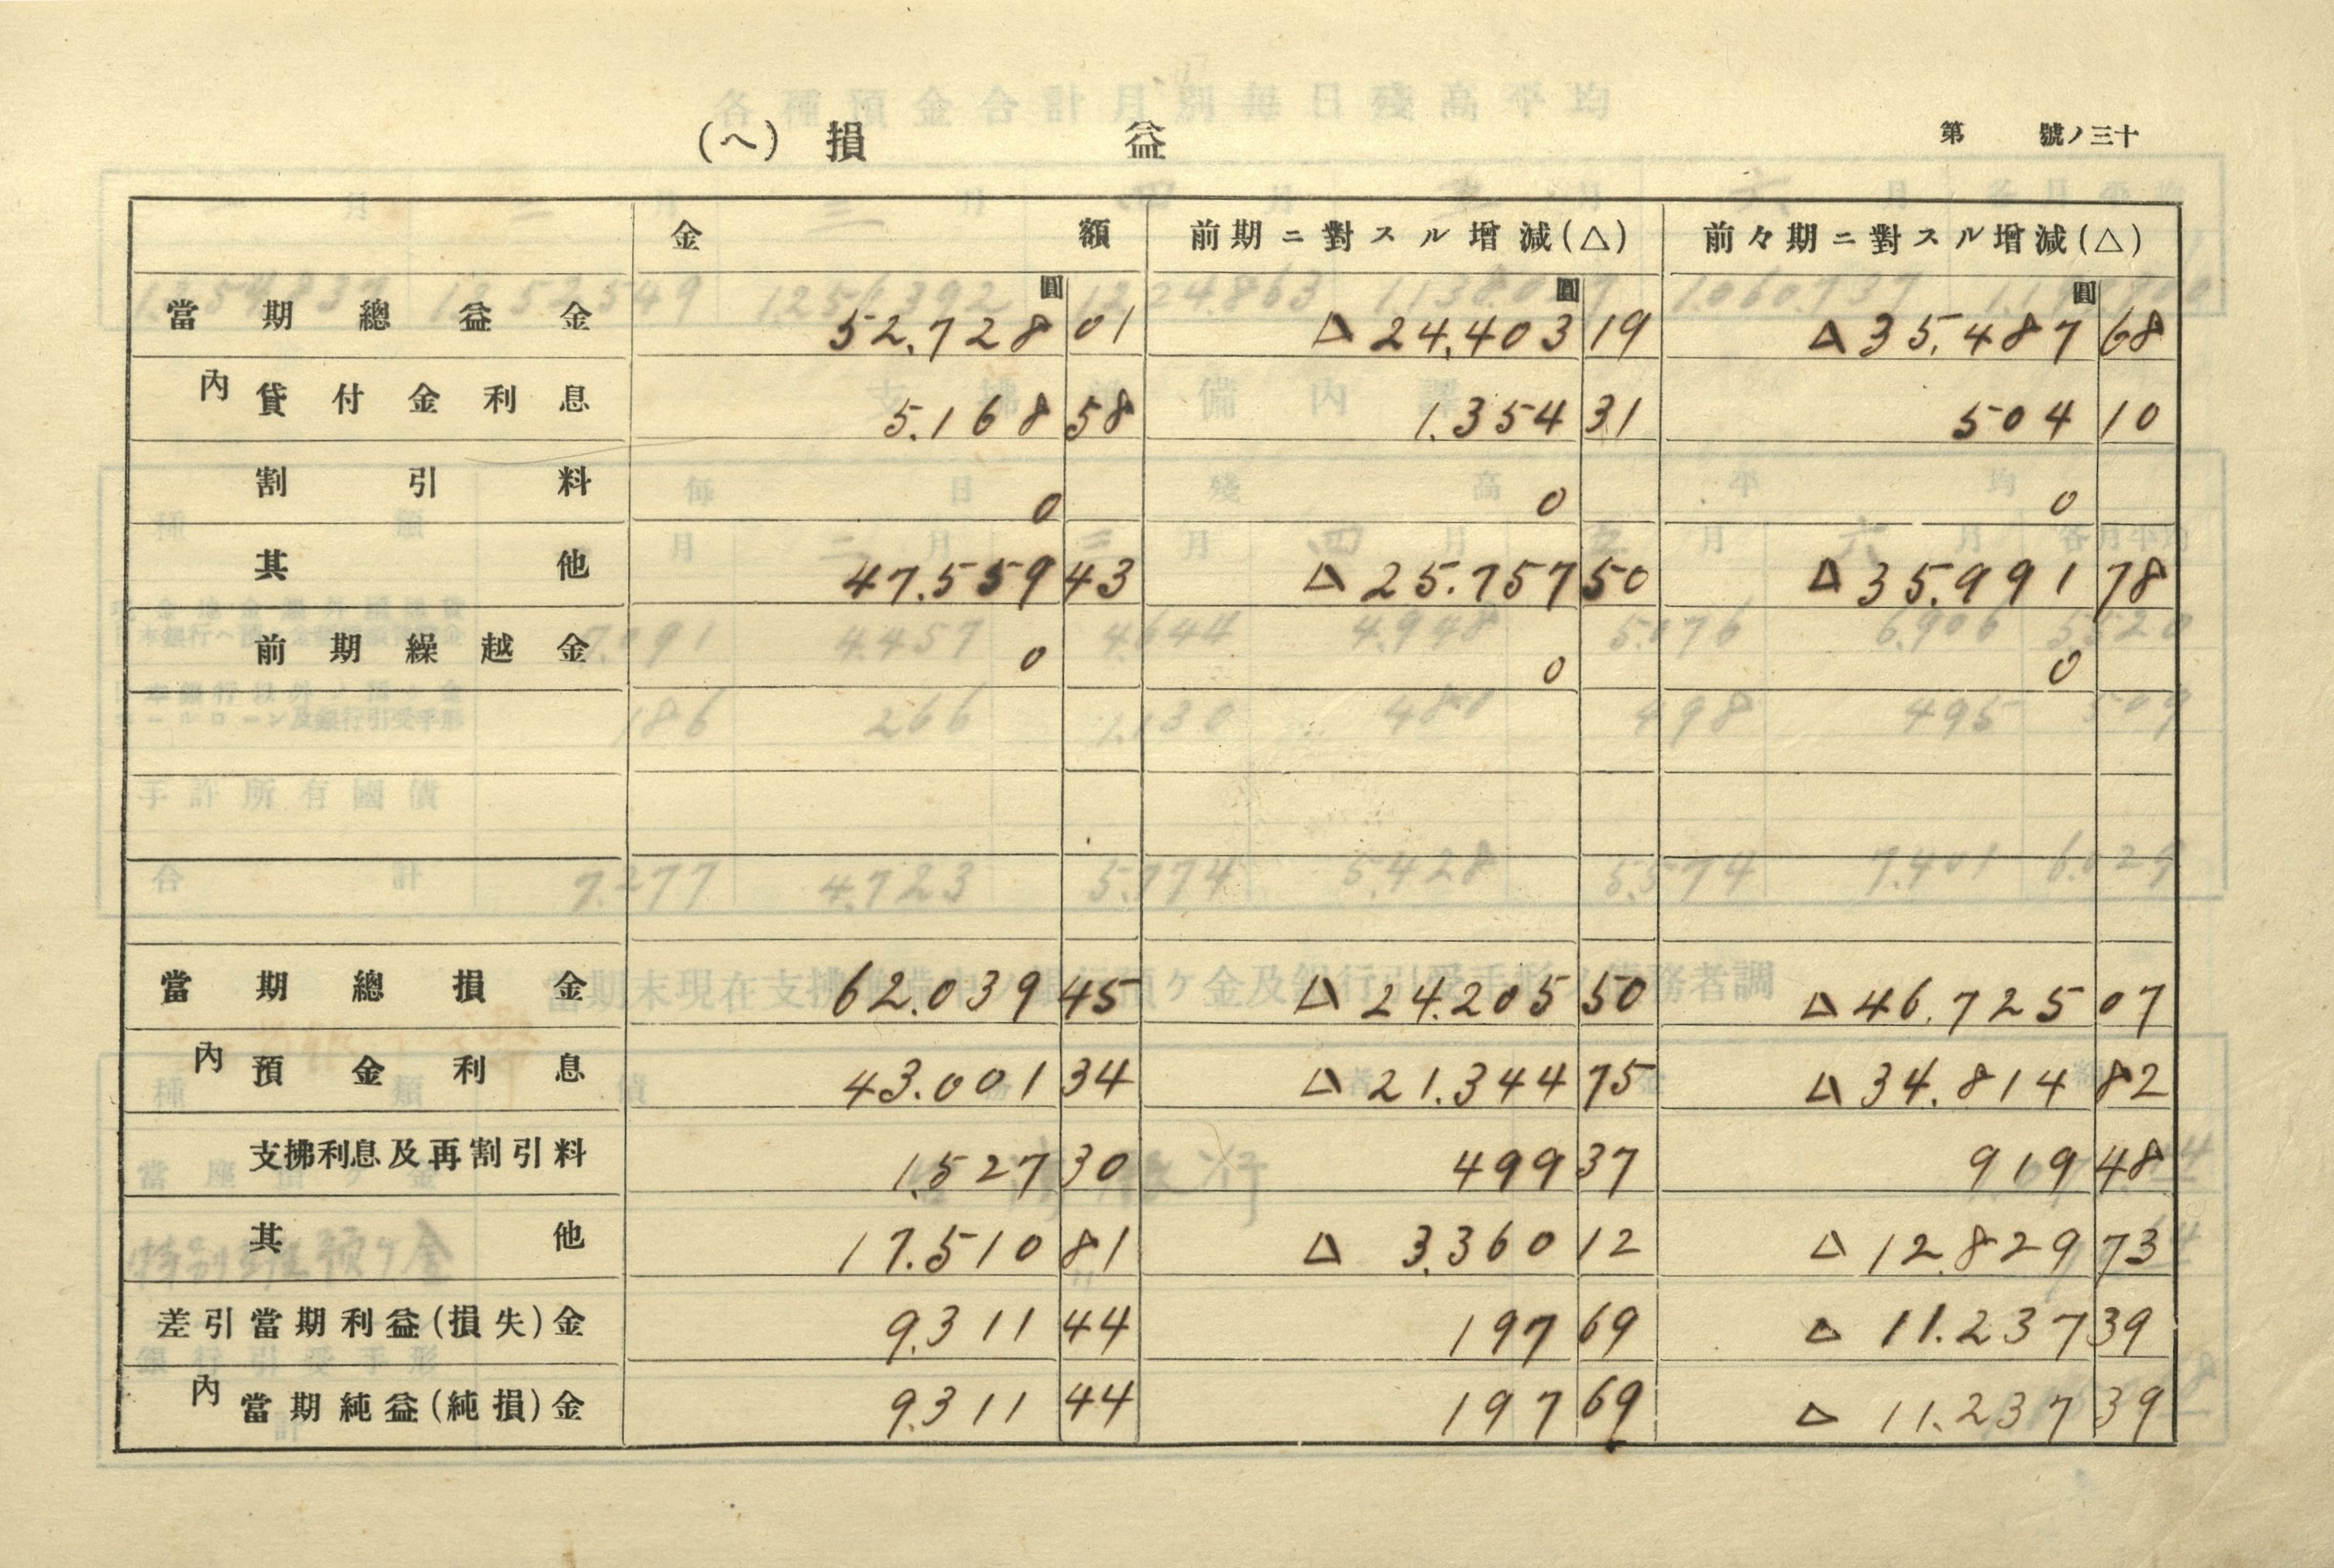 (ヘ) 損 益
第 號ノ三十
金 額 前期ニ對スル增減(△) 前々期ニ對スル增減(△)
圓 圓 圓
當期總益金 52.728 01 △24.403 19 △35.487 68
內 貸付金利息 5.168 58 1.354 31 504 10
割引料 0 0 0
其他 47.559 43 △25.757 50 △35.991 78
前期繰越金 0 0 0
當期總損金 62.039 45 △24.205 50 △46.725 07
內 預金利息 43.001 34 △21.344 75 △34.814 82
支拂利息及再割引料 1.527 30 499 37 919 48
其他 17.510 81 △3.360 12 △12.829 73
差引當期利益(損失)金 9.311 44 197 69 △11.237 39
內 當期純益(純損)金 9.311 44 197 69 △11.237 39